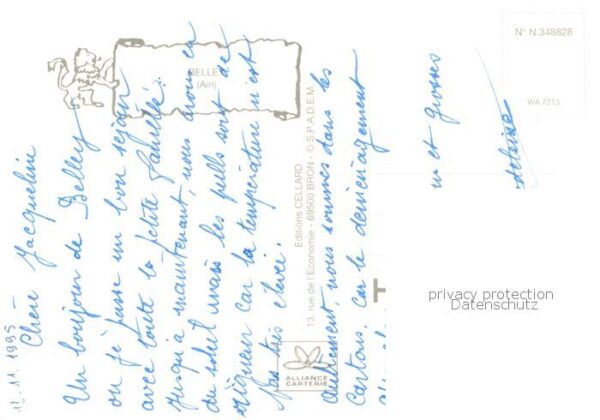 12.11.1995
Chère Jacqueline
Un bonjour de Belley
où je passe un bon séjour
avec toute la petite famille.
Jusqu'à maintenant, nous avons eu
du soleil mais les pulls sont de
rigueur car la température n'est
pas très élevée.
Autrement, nous sommes dans les
cartons, car le déménagement
et grosses
BELLEY
(Ain)
Editions CELLARD
13, rue de l'Economie - 69500 BRON - © S.P.A.D.E.M.
ALLIANCE
CARTERIE
N° N.348828
WA 7213
privacy protection
Datenschutz